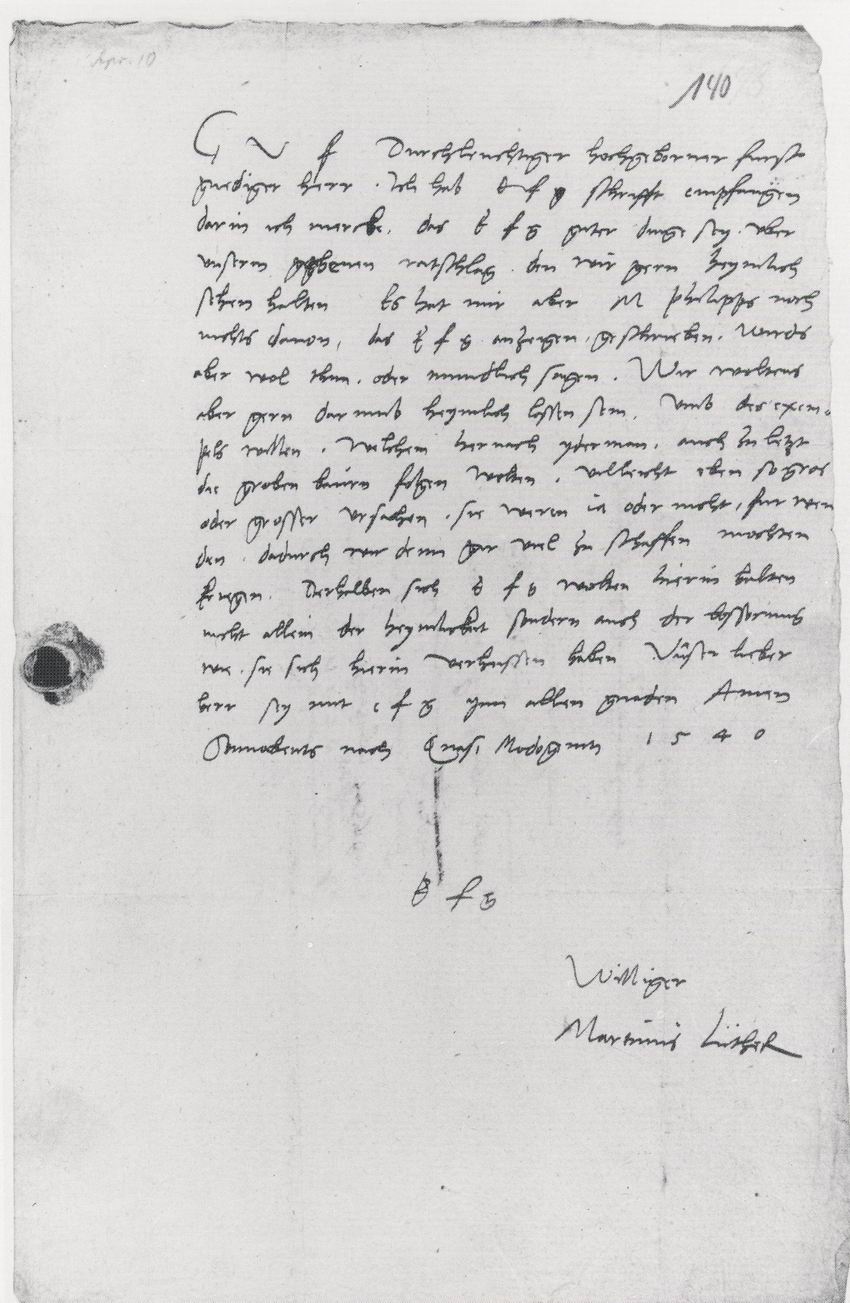 Apr. 10
140
G V f Durchleuchtiger hochgeborner furst
gnediger herr . Ich hab E f g schrifft empfangen
darin ich mercke, das E f g guter dinge sey . vber
vnserm gegebenen ratschlag . den wir gern heymlich
sehen halten Es hat mir aber M Philipps noch
nichts dauon, das E f g anzeigen, geschrieben. Wirds
aber wol thun . oder mundlich sagen . Wir woltens
aber gern darumb heymlich lassen sein . Vmb des exem-
pels willen . Welchem hernach yderman, auch zu letzt
die groben baurn folgen wolten . villeicht eben so gros
oder grosser vrsachen . sie weren ia oder nicht, fur wen
den . dadurch wir denn gar viel zu schaffen mochten
kriegen . Derhalben sich E f g wolten hierin halten
nicht allein der heymlickeit sondern auch der besserung
wie . sie sich hierin verheissen haben Vnser lieber
herr sey mit e f g ynn allen gnaden Amen
Sonnabents nach Quasi Modogeniti 1 5 4 0
E f g
Williger
Martinus Luther